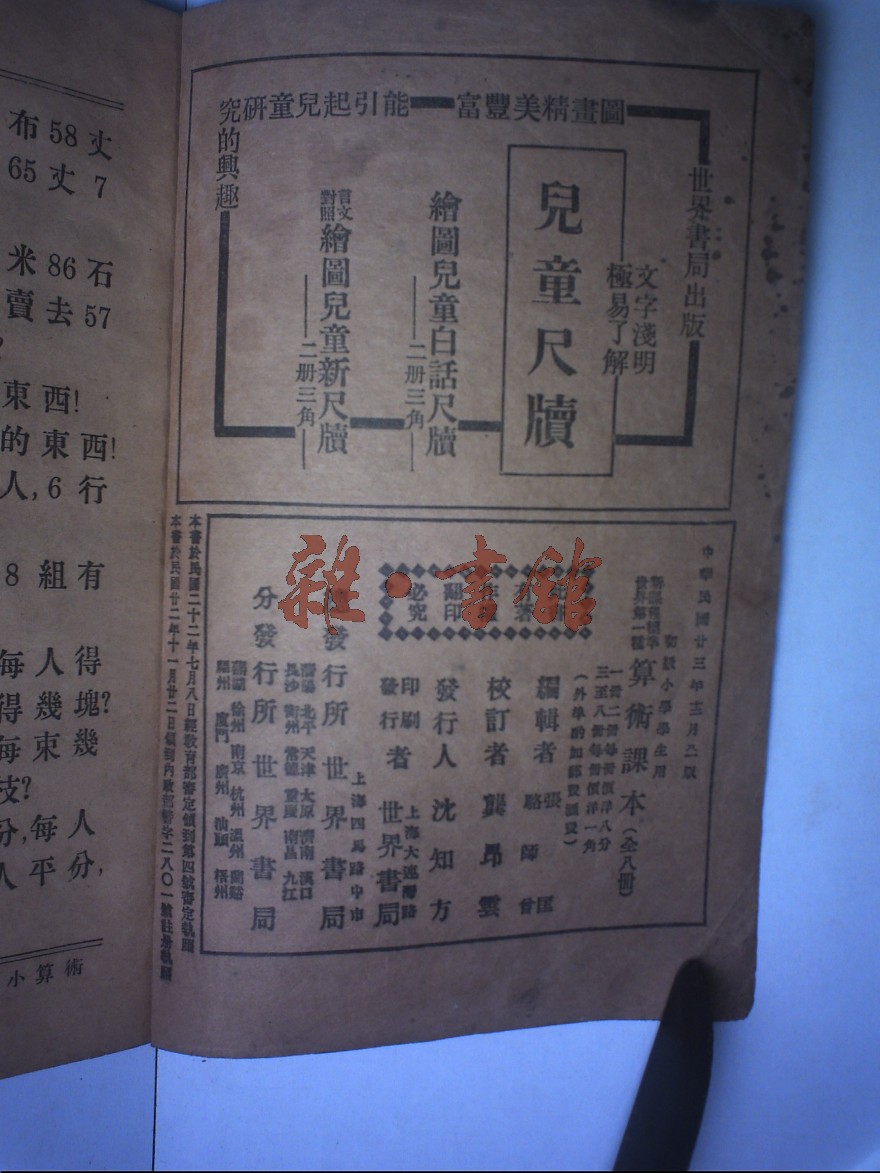 布58丈
65丈7
米86石
賣去57
?
東西!
的東西!
人,6行
8組有
每人得
得幾塊?
每束幾
枝?
分,每人
人平分,
小算術
圖畫精美豐富——能引起兒童研究的興趣
世界書局出版
文字淺明
極易了解
兒童尺牘
繪圖兒童白話尺牘
二册三角
言文對照繪圖兒童新尺牘
二册三角
中華民國廿三年
初級小學學生用
世界第一種
算術課本(全八冊)
一冊二冊每冊價洋八分
三至八冊每冊價洋一角
(外埠酌加郵費匯費)
編輯者 張匡
駱師曾
校訂者 龔昂雲
發行人 沈知方
印刷者 發行者 世界書局
上海大連灣路
翻印必究
發行所 世界書局
上海四馬路中市
分發行所 世界書局
瀋陽 北平 天津 太原 濟南 漢口
長沙 衡州 常德 重慶 南昌 九江
蕪湖 徐州 南京 杭州 溫州 蘭谿
廈門 廣州 汕頭 梧州
本書於民國二十二年七月八日經教育部審定領到第四號審定執照
本書於民國廿二年十一月廿二日領到內政部警字二八〇一號註册執照
雜·書館